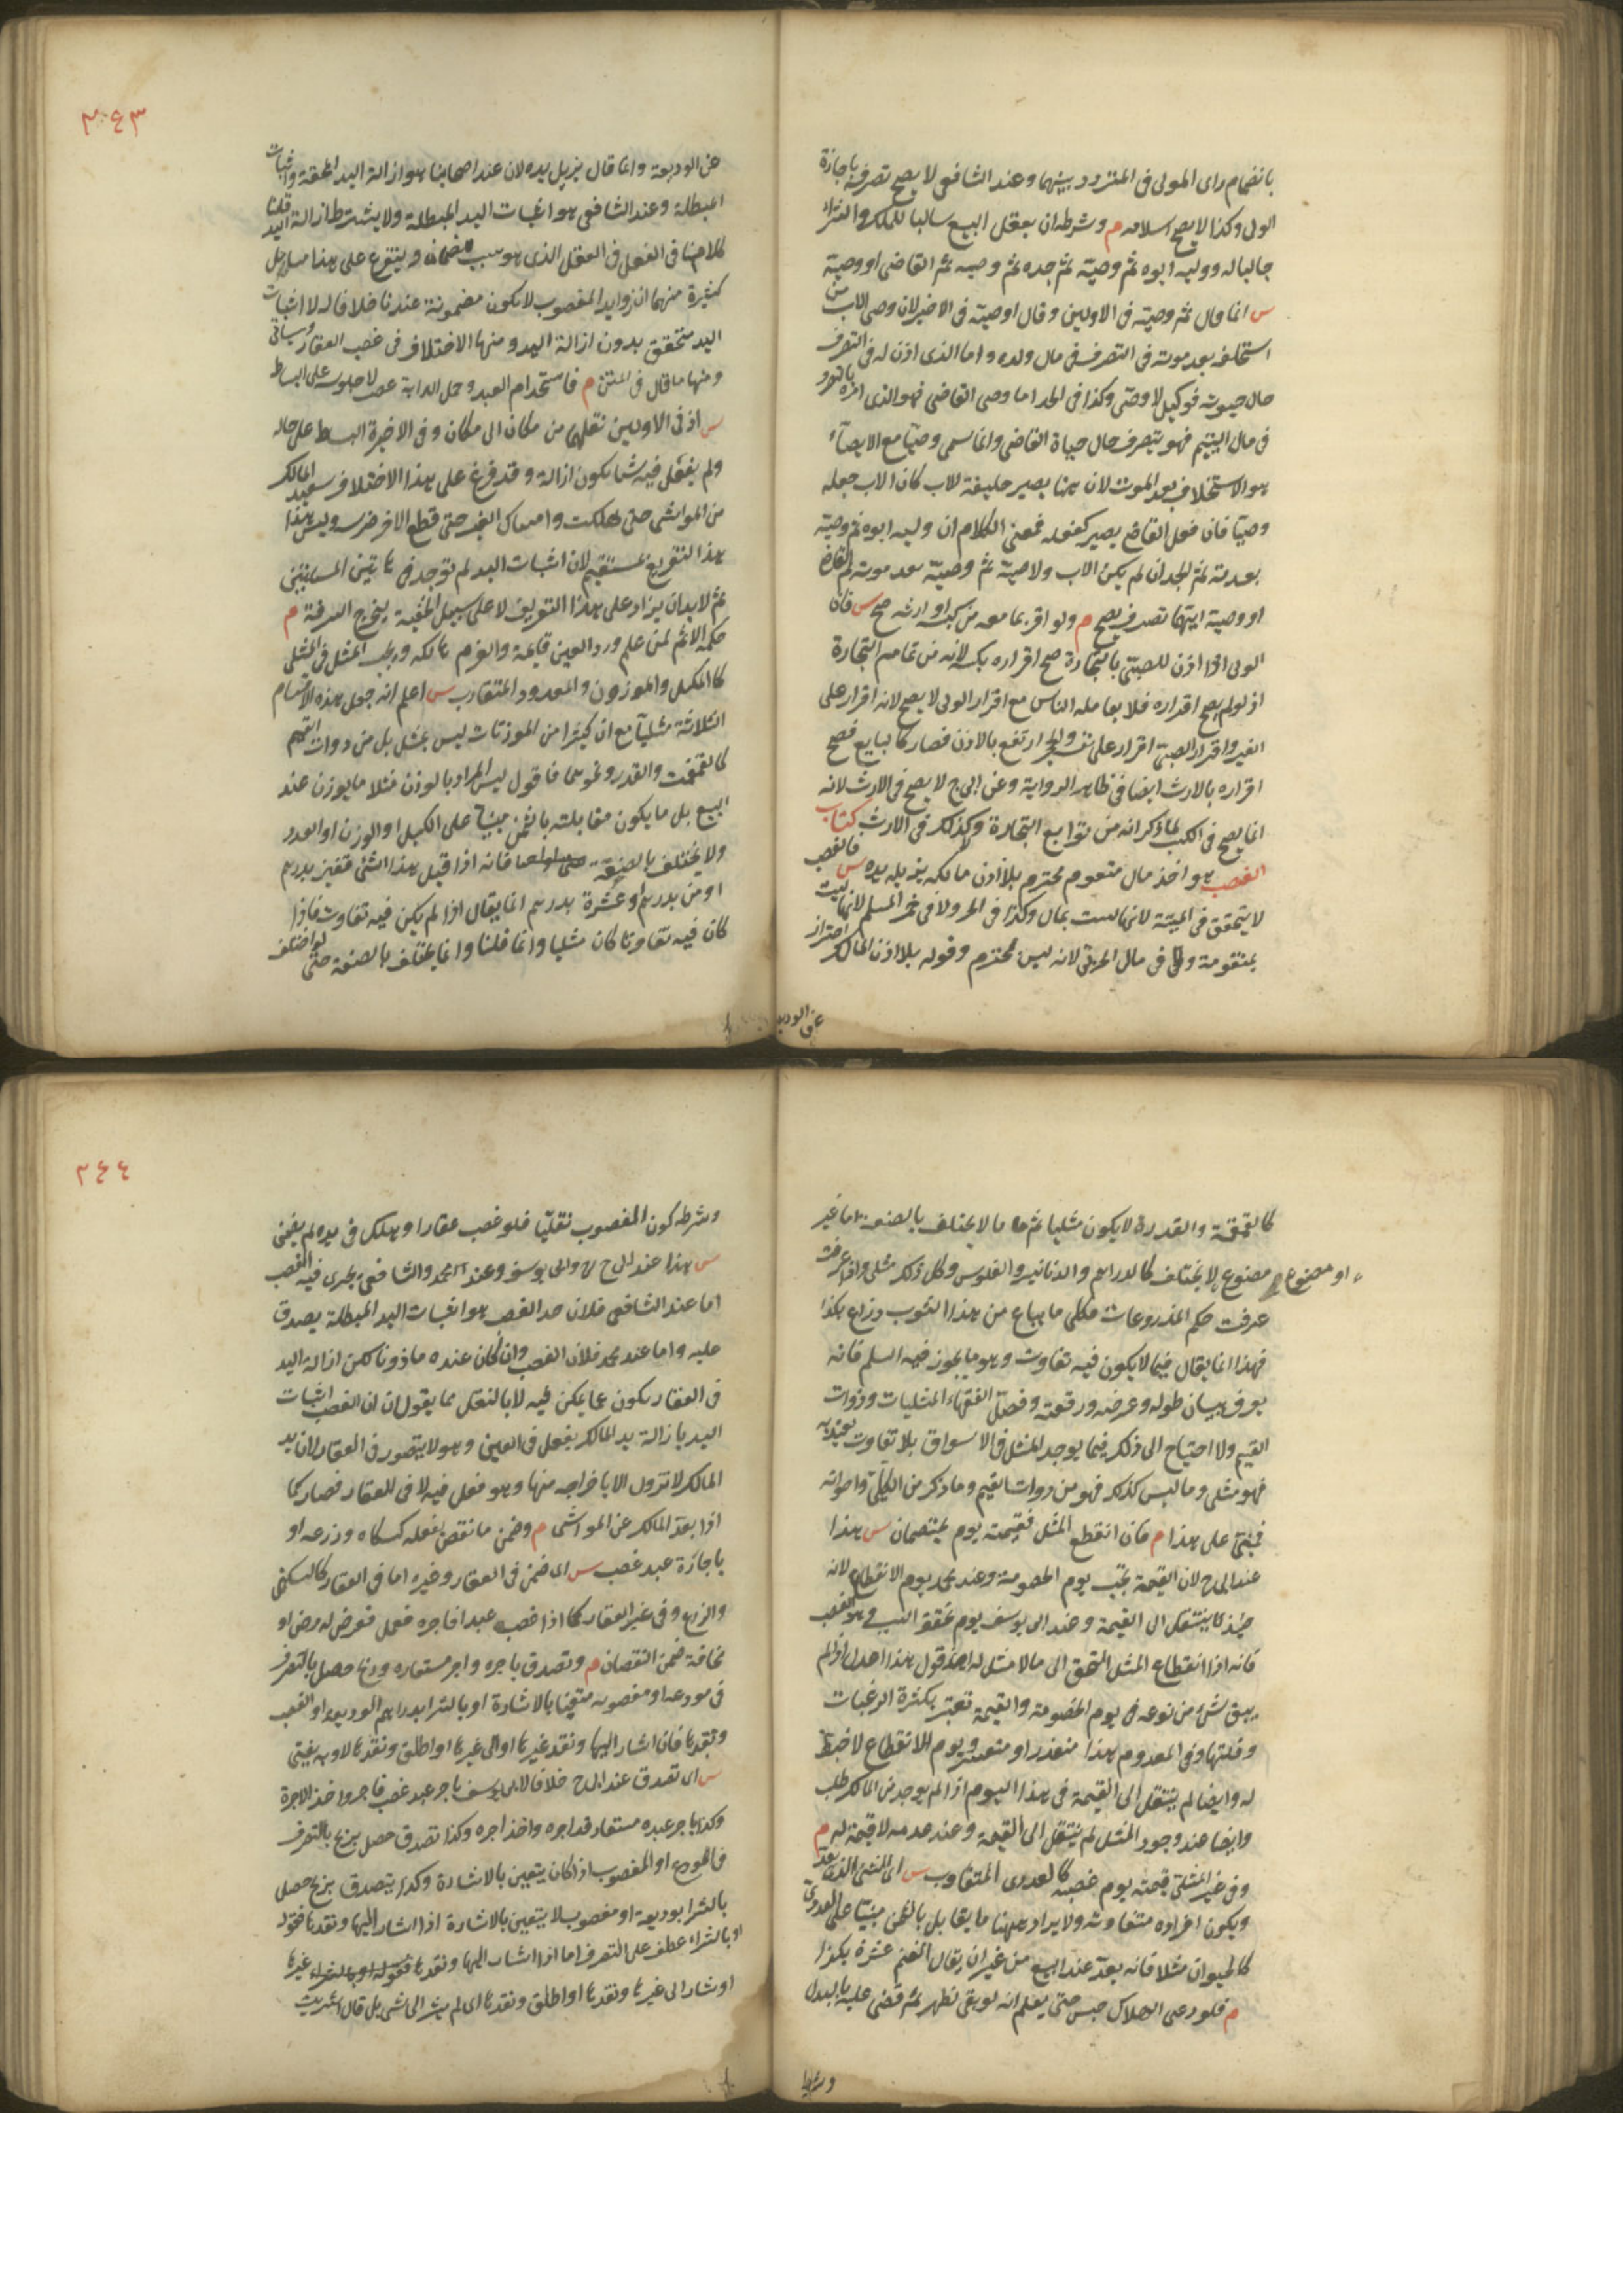 بانضمام راى المولى فى المتردد بينهما وعند الشافعى لا يصح تصرفه باجازة
الولى وكذا لا يصح اسلامه م وشرطه ان يعقل البيع سالبا للملك والشراء
جالبا له ووليه ابوه ثم وصيّه ثم جده ثم وصيه ثم القاضى او وصيّه
س انما قال ثم وصيّه فى الاولين وقال او وصيّه فى الاخير لان وصى الاب من
استخلفه بعد موته فى التصرف فى مال ولده واما الذى اذن له فى التصرف
حال حيوته فوكيل لا وصّى وكذا فى الجد اما وصى القاضى فهو الذى امره بالتصرف
فى مال اليتيم فهو يتصرف حال حياة القاضى وانما سمى وصيّا مع الايصآء
هو الاستخلاف بعد الموت لان ههنا يصير خليفة للاب كان الاب جعله
وصيّا فان فعل القاضى يصير كفعله فمعنى الكلام ان وليه ابوه ثم وصيّه
بعد موته ثم الجد ان لم يكن الاب ولا وصيّه ثم وصيّه بعد موته ثم القاضى
او وصيه ايهما تصرف يصح م ولو اقر بما معه من كسبه او ارثه صح س فان
الولى اذا اذن للصبّى بالتجارة صح اقراره بكسبه لانه من تمامه التجارة
اذ لو لم يصح اقراره فلا يعامله الناس مع اقرار الولى لا يصح لانه اقرار على
الغير واقرار الصبّى اقرار على نفسه والحجر ارتفع بالاذن فصار كالبايع فصح
اقراره بالارث ايضا فى ظاهر الرواية وعن ابى ح لا يصح فى الارث لانه
انما يصح فى الكسب لما ذكر انه من توابع التجارة وكذلك فى الارث كتاب
الغصب هو اخذ مال متقوم محترم بلا اذن مالكه يزيل يده س فالغصب
لا يتحقق فى الميتة لانها ليست بمال وكذا فى الحر ولا فى خمر المسلم لانها ليست
بمتقومة ولا فى مال الحربّى لانه ليس محترم وقوله بلا اذن المالك احتراز
عن الوديعة
٣٤٣
عن الوديعة وانما قال يزيل يده لان عند اصحابنا هو ازالة اليد المحقة واثبات
المبطلة وعند الشافعى هو اثبات اليد المبطلة ولا يشترط ازالة اليد قلنا
كلامنا فى الفعل الذى هو سبب ضمانه ويتفرع على هذا مسايل
كثيرة منها ان زوايد المغصوب لا يكون مضمونة عندنا خلافا له لا اثبات
اليد متحقق بدون ازالة اليد ومنها الاختلاف فى غصب العقار وسياتى
ومنها ما قال فى المتن م فاستخدام العبد وحمل الدابة غصب لا جلوسه على البساط
س اذ فى الاولين نقلهما من مكان الى مكان وفى الاخيرة البسط على حاله
ولم يفعل فيه شيئا يكون ازالة وقد فرغ على هذا الاختلاف تبعيد المالك
من المواشى حتى هلكت وامساك الغير حتى قطع الاخر ضرسه وليس هذا
هذا التفريع بمستقيم لان اثبات اليد لم توجد فى هاتين المسئلتين
ثم لا بد ان يزاد على هذا التعريف لا على سبيل الخفية يخرج السرقة م
حكمه الاثم لمن علم ورد العين قايمة والغرم هالكة ويجب المثل فى المثلى
كالمكيل والموزون والمعدود المتقارب س اعلم انه جعل هذه الاقسام
الثلاثة مثليا مع ان كثيرا من الموزنات ليس بمثل بل من ذوات القيم
كالقمقمة والقدر ونحوهما فاقول ليس المراد بالوزن مثلا ما يوزن عند
البيع بل ما يكون مقابلته بالثمن مبنيا على الكيل او الوزن او العدد
ولا يختلف بالصنعة فانه اذا قيل هذا الشئ قفيز بدرهم
او من بدرهم او عشرة بدرهم انما يقال اذا لم يكن فيه تفاوت فاذا
كان فيه تفاوتا كان مثليا وانما قلنا وانما يختلف بالصنعة حتى لو اختلف
كالقمقمة والقدرة لا يكون مثليا ثم ما لا يختلف بالصنعة اما غير
مصنوع لا يختلف كالدراهم والدنانير والفلوس وكل ذلك مثلى واذا عرفت
او مصنوع صح
عرفت حكم المذروعات فكلى ما يباع من هذا الثوب ذراع بكذا
فهذا انما يقال فيما لا يكون فيه تفاوت وهو ما يجوز فيه السلم فانه
يعرف ببيان طوله وعرضه ورقعته وفصّل الفقهاء المثليات وذوات
القيم ولا احتياج الى ذلك فيما يوجد المثل فى الاسواق بلا تفاوت يعتد به
فهو مثلى وما ليس كذلك فهو من ذوات القيم وما ذكر من الكيلّى واخواته
فمبنّى على هذا م فان انقطع المثل فقيمته يوم يختصمان س هذا
عند ابى ح لان القيمة تجب يوم الخصومة وعند محمد يوم الانقطاع لانه
حينئذ ينتقل الى القيمة وعند ابى يوسف يوم تحقق السبب وهو الغصب
فانه اذا انقطاع المثل التحق الى ما لا مثل له اقول هذا اعدل اذ لم
يبق شئ من نوعه فى يوم الخصومة والقيمة تعتبر بكثرة الرغبات
وقلتها وفى المعدوم هذا متعذر او متعسر ويوم الانقطاع لا ضبط
له وايضا لم ينتقل الى القيمة فى هذا اليوم اذا لم يوجد من المالك طلب
وايضا عند وجود المثل لم ينتقل الى القيمة وعند عدمه لا قيمة له م
وفى غير المثلّى قيمته يوم غصبه كالعددى المتفاوت س اى الشئ الذى يعد
ويكون افراده متفاوتة ولا يراد ههنا ما يقابل بالثمن مبنيّا على العدد
كالحيوان مثلا فانه يعدّ عند البيع من غير ان يقال الغنم عشرة بكذا
م فلو ادعى الهلاك حبس حتى يعلم انه لو بقى لظهر ثم قضى عليه بالبدل
وشرطه
٢٤٤
وشرطه كون المغصوب نقليّا فلو غصب عقارا وهلك فى يده لم يضمن
س هذا عند ابى ح وابى يوسف وعند محمد والشافعى يجرى فيه الغصب
اما عند الشافعى فلان حد الغصب هو اثبات اليد المبطلة يصدق
عليه واما عند محمد فلان الغصب وان كان عنده ما ذونا لكن ازالة اليد
فى العقار يكون بما يمكن فيه لا بالنقل بما يقولان ان الغصب اثبات
اليد بازالة يد المالك بفعل فى العين وهو لا يتصور فى العقار لان يد
المالك لا تزول الا باخراجه منها وهو فعل فيه لا فى العقار فصار كما
اذا بعدّ المالك عن المواشى م وضمن ما نقص بفعله كسكناه وزرعه او
باجازة عبد غصب س اى ضمن فى العقار وغيره اما فى العقار كالسكنى
والزرع وفى غير العقار كما اذا غصب عبدا فاجره فعمل فعرض له مرض او
نحافة ضمن النقصان م وتصدق باجره واجر مستعاره وربح حصل بالتصرف
فى مودعه او مغصوبه متعيّنا بالاشارة او بالشرا بدراهم الوديعة او الغصب
ونقدها فان اشار اليها ونقد غيرها او الى غيرها او اطلق ونقدها لا وبه يفتى
س اى تصدق عند ابى ح خلافا لابى يوسف باجر عبد غصب فاجر واخذ الاجرة
وكذا باجر عبده مستعار قد اجره واخذ اجره وكذا تصدق حصل بربح بالتصرف
فى المودع او المغصوب اذا كان يتعين بالاشارة وكذا يتصدق بربح حصل
بالشرا بوديعة او مغصوب لا يتعين بالاشارة اذا اشار اليها ونقدها فقوله
او بالشراء عطف على التصرف اما اذا اشار اليها ونقد غيرها
او شار الى غيرها ونقدها او اطلق ونقدها اى لم يشر الى شى بل قال اشتريت